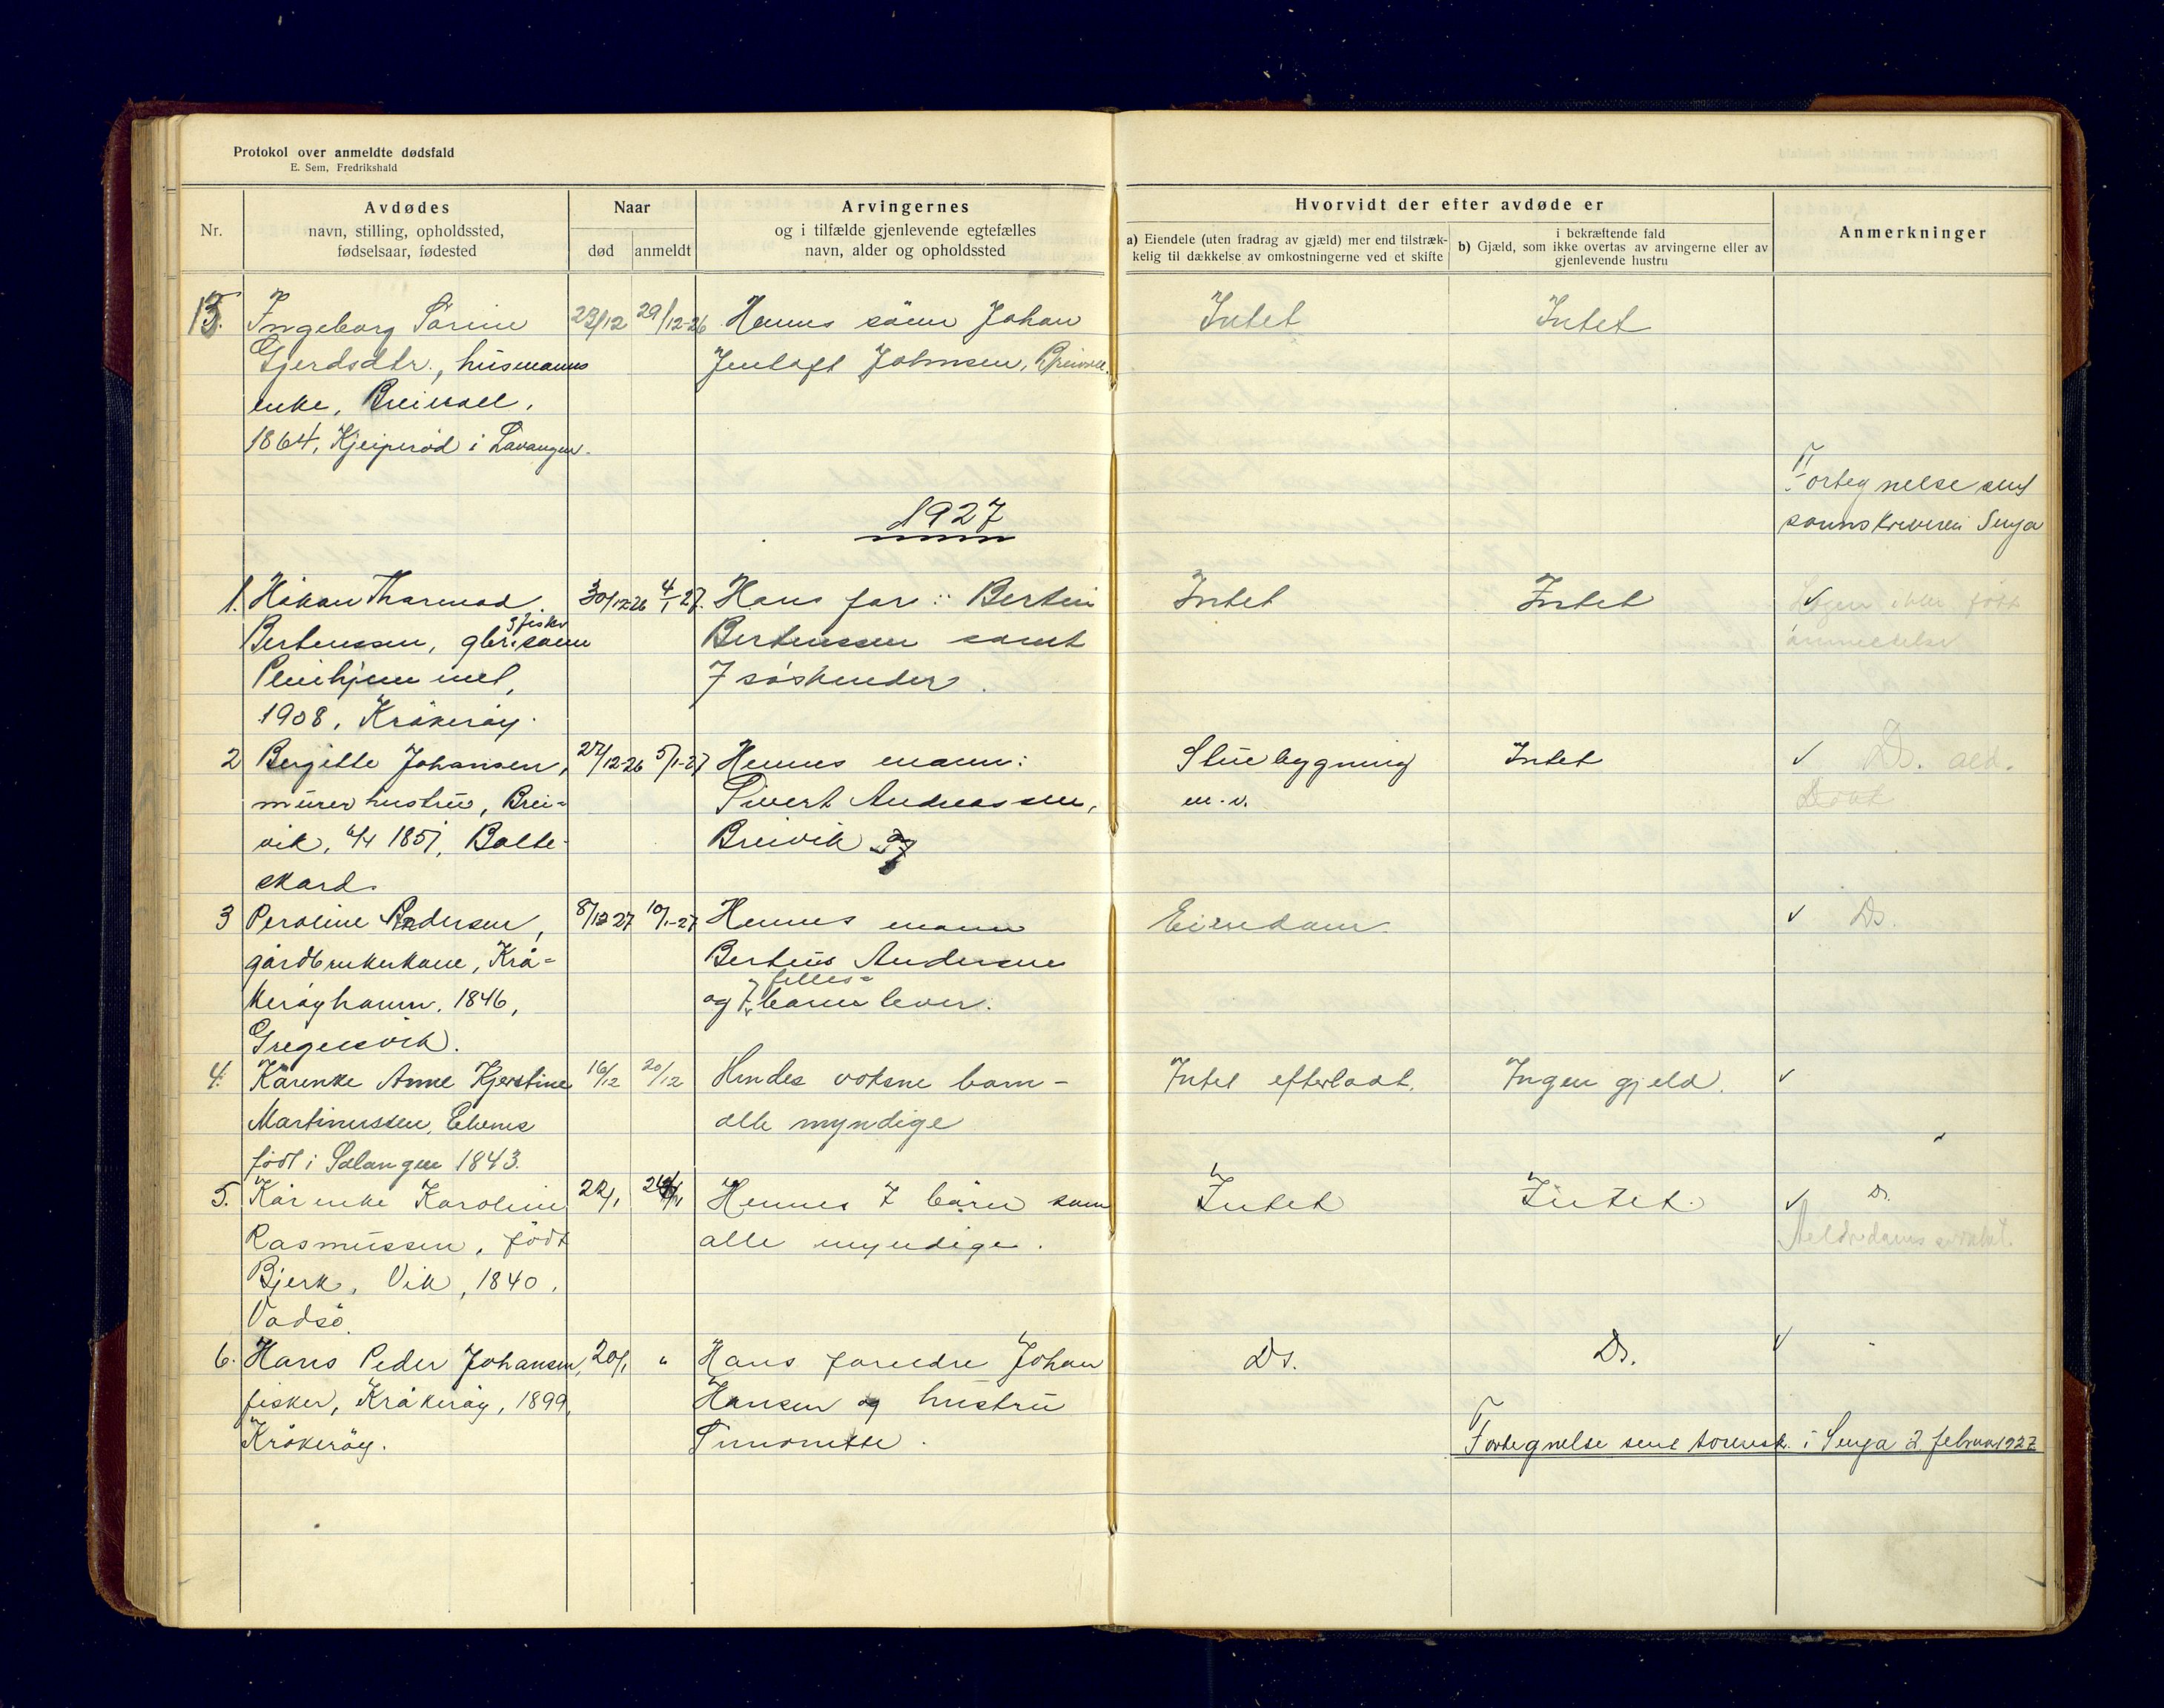 Protokol over anmeldte dødsfald
E. Sem, Fredrikshald
Nr.
Avdødes
navn, stilling, opholdssted,
fødselsaar, fødested
Naar
død
anmeldt
Arvingernes
og i tilfælde gjenlevende egtefælles
navn, alder og opholdssted
Hvorvidt der efter avdøde er
a) Eiendele (uten fradrag av gjæld) mer end tilstræk-
kelig til dækkelse av omkostningerne ved et skifte
i bekræftende fald
b) Gjæld, som ikke overtas av arvingerne eller av
gjenlevende hustru
Anmerkninger
13. Ingeborg Sørine 23/12 29/12-26 Hennes sönn Johan Intet Intet
Gjerdsdtr., husmanns Jentoft Johnsen,
enke,
1864, i Lavangen.
Fortegnelse sent
Senja
1927
1. Håkon 30/12-26 4/1 27. Hans far: Bertin Intet Intet
Bertenssen, gbr. & fisker sönn Bertenssen samt
7 söskender.
1908, Kråkeröy.
ikke født
anmeldelse
2 Bergitte Johansen, 27/12-26 5/1-27 Hennes mann: Stuebygning Intet Ds.
murerhustru, Brei- Sivert Andreassen, m.v.
vik, 1851, Balte- Breivik
skard.
3 Peroline Andersen, 8/12 27 10/1-27 Hennes mann Eiendom. Ds.
gårdbrukerkone, Krå- Berteus Andersen
keröyhamn, 1846, og 7 felles- barn lever.
4. Kårenke Anne Kjerstine 16/12 20/12 Hendes voksne barn - Intet efterladt. Ingen gjeld.
Martinussen, alle myndige
født i Salangen 1843.
5. Kårenke Karoline 22/1 Hennes 7 barn som Intet Intet. Ds.
Rasmussen, født alle myndige.
Bjerk, Vik, 1840,
Vadsö.
6. Hans Peder Johansen, 20/1 " Hans foreldre Johan Ds. Ds.
fisker, Kråkeröy, 1899, Hansen og hustru
Kråkeröy. Simonette.
Fortegnelse sent sorensk. i Senja 2 februar 1927